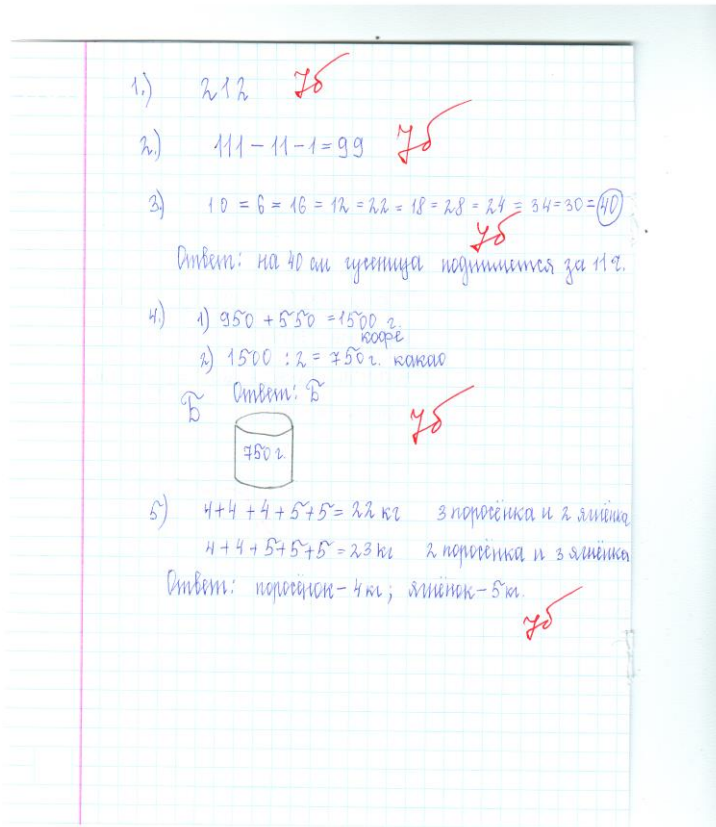 1.) 212 7б
2.) 111 - 11 - 1 = 99 7б
3.) 10 = 6 = 16 = 12 = 22 = 18 = 28 = 24 = 34 = 30 = 40
7б
Ответ: на 40 см гусеница поднимется за 11 ч.
4.) 1) 950 + 550 = 1500 г.
кофе
2) 1500 : 2 = 750 г. какао
Б Ответ: Б
7б
750 г.
5) 4+4+4+5+5 = 22 кг 3 поросёнка и 2 ягнёнка
4+4+5+5+5 = 23 кг 2 поросёнка и 3 ягнёнка
Ответ: поросёнок - 4 кг; ягнёнок - 5 кг.
7б